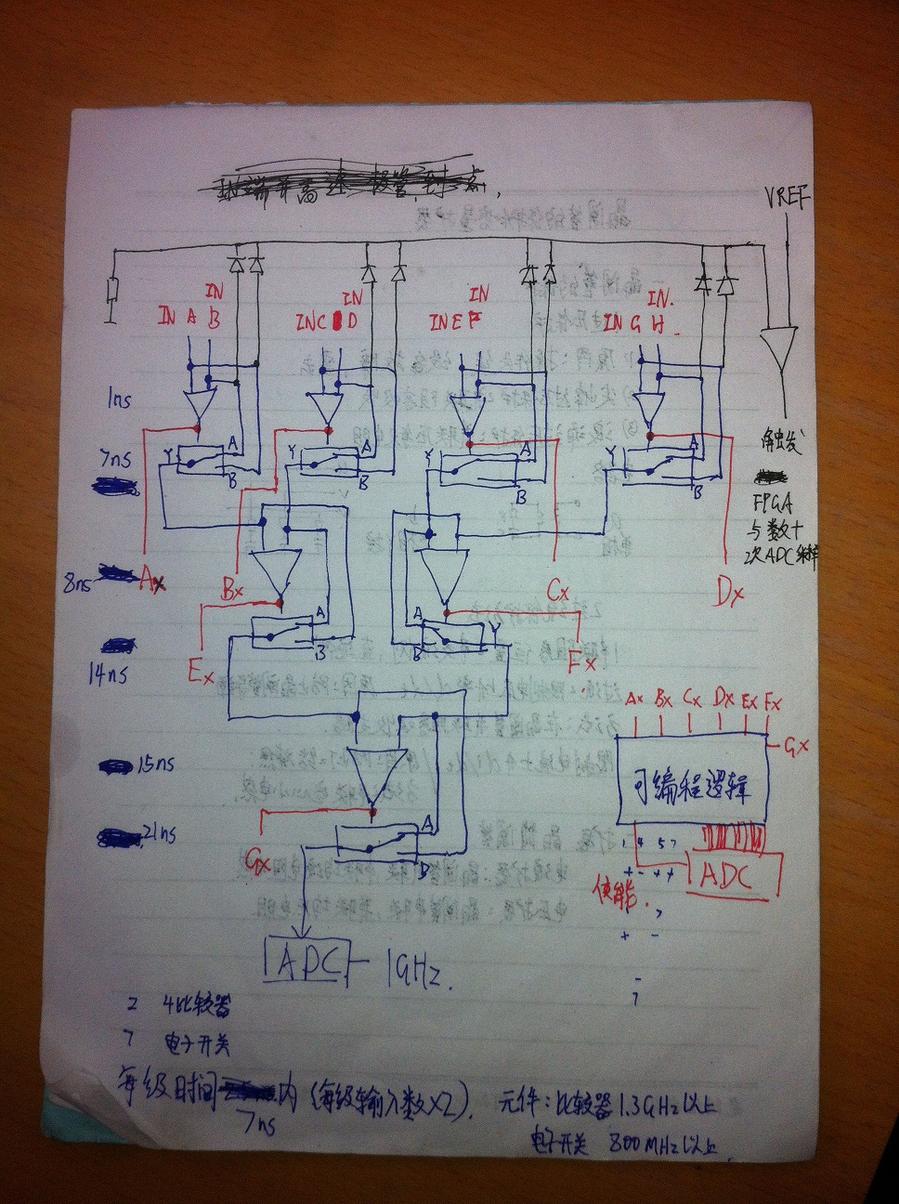 VREF
IN IN IN IN
IN A B INC D IN E F IN G H
1ns
7ns
Y A B
Y A B
Y A B
Y A B
触发
FPGA
与数十
次ADC采样
8ns
Ax Bx Cx Dx
A B
A B Y
Ex Fx
14ns
15ns
21ns
Gx
A
Ax Bx Cx Dx Ex Fx
Gx
可编程逻辑
使能
ADC
ADC 1GHz.
2 4比较器
7 电子开关
每级时间 内(每级输入数×2). 元件:比较器1.3GHz以上
7ns
电子开关 800MHz以上.